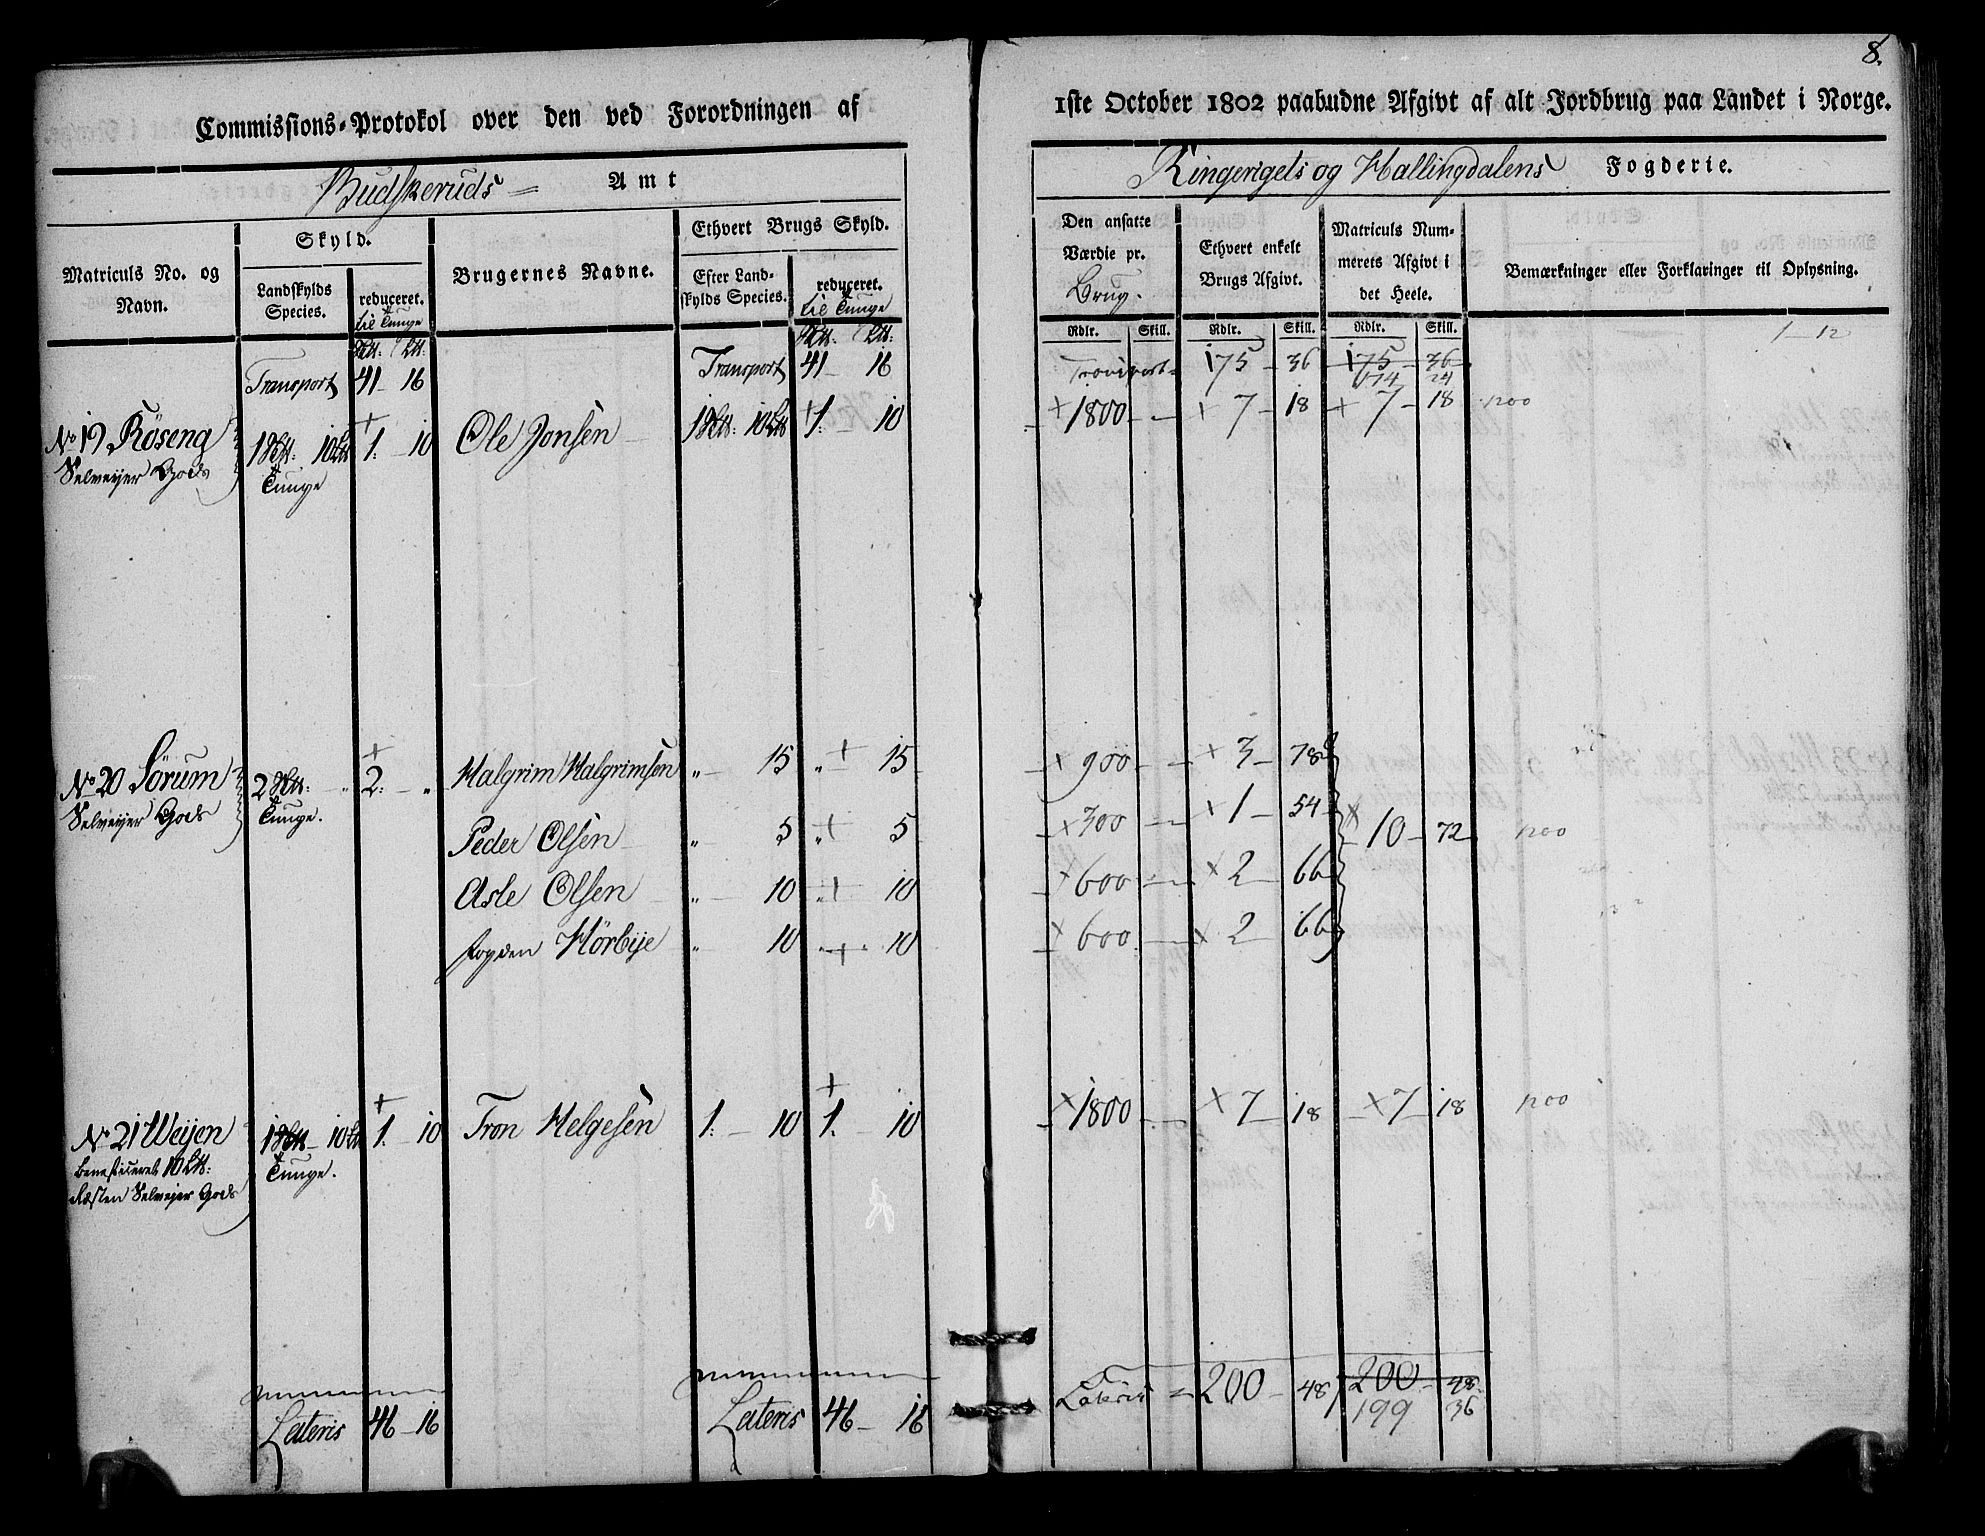 8.
Commissions-Protokol over den ved Forordningen af
1ste October 1802 paabudne Afgivt af alt Jordbrug paa Landet i Norge.
Budskeruds Amt
Ringerigets og Hallingdalens Fogderie.
Matriculs No. og Navn.
Skyld.
Landskylds Species.
reduceret. til Tunge
Brugernes Navne.
Ethvert Brugs Skyld.
Efter Landskylds Species.
reduceret. til Tunge
Den ansatte Værdie pr. Brug.
Ethvert enkelt Brugs Afgivt.
Matriculs Nummerets Afgivt i det Heele.
Bemærkninger eller Forklaringer til Oplysning.
Rdlr. Skill. Rdlr. Skill. Rdlr. Skill.
1 - 12
Transport 41 - 16 Transport 41 - 16 Transport 175 - 36 175 - 36
174 24
No 19 Röseng 1 10 1: 10 Ole Jonsen 1 10 1: 10 1800 - 7 - 18 7 - 18
Selveyer Gods Tunge
No 20 Sörum 2 2: - " Halgrim Halgrimsen " 15 " 15 900 - 3 - 78 10 - 72
Selveyer Gods Tunge.
Peder Olsen " 5 " 5 300 - 1 - 54
Asle Olsen " 10 " 10 600 - 2 - 66
fogden Hörbye " 10 " 10 600 - 2 66
No 21 Weijen 1 10 1. - 10 Tron Helgesen 1: - 10 1. - 10 1800 - 7 - 18 7 - 18
Beneficeret 10 Tunge.
Resten Selveyer Gods
Lateris 46 - 16 Lateris 46 - 16 Lateris = 200 - 48 200 - 48
199 36